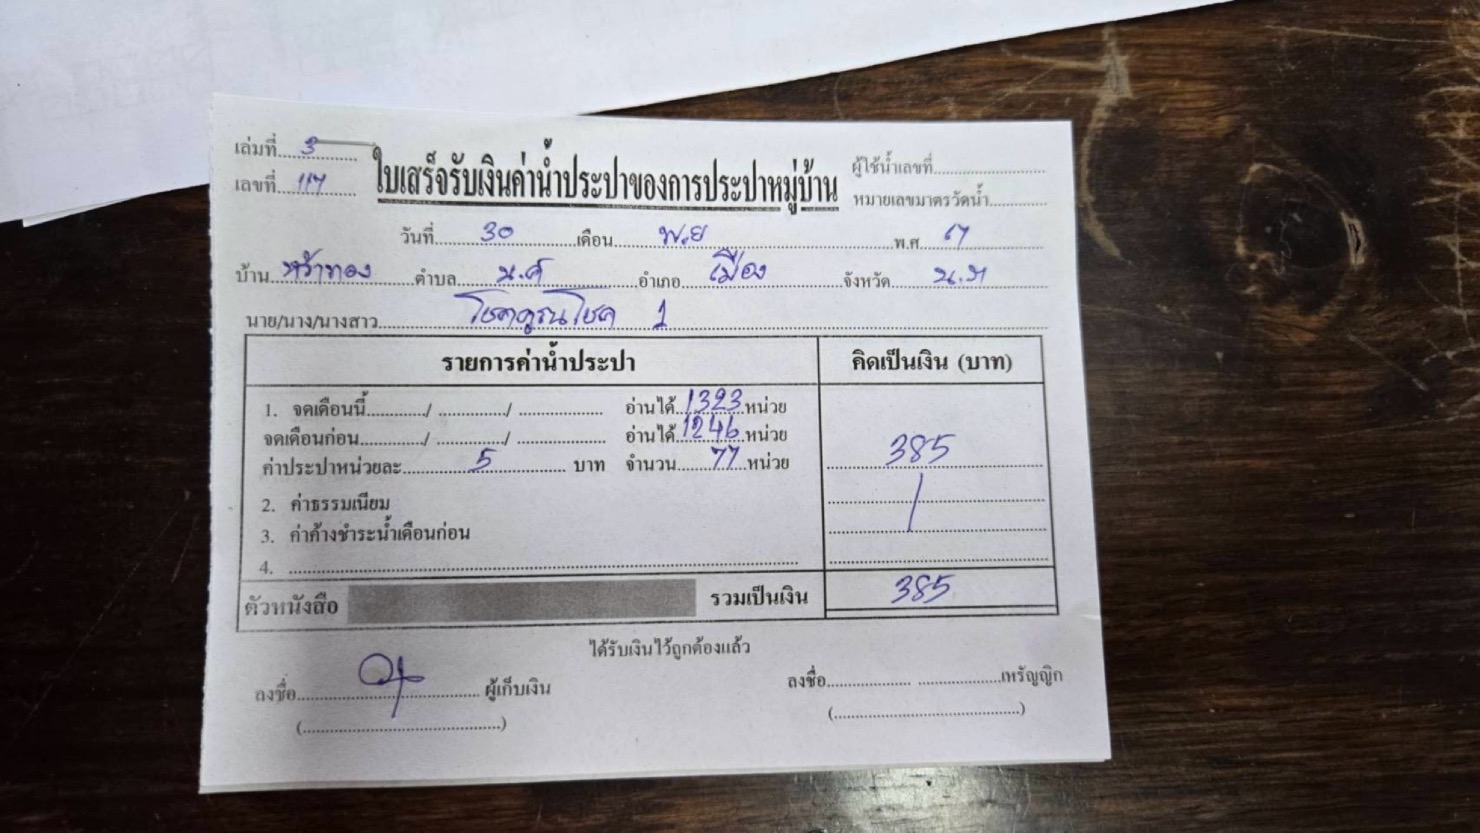 เล่มที่ 3
เลขที่ 117
ใบเสร็จรับเงินค่าน้ำประปาของการประปาหมู่บ้าน
ผู้ใช้น้ำเลขที่
หมายเลขมาตรวัดน้ำ
วันที่ 30 เดือน พ.ย พ.ศ 67
บ้าน ตำบล อำเภอ เมือง จังหวัด
นาย/นาง/นางสาว โชคคูณโชค 1
รายการค่าน้ำประปา คิดเป็นเงิน (บาท)
1. จดเดือนนี้ / / อ่านได้ 1323 หน่วย
จดเดือนก่อน / / อ่านได้ 1246 หน่วย
ค่าประปาหน่วยละ 5 บาท จำนวน 77 หน่วย 385
2. ค่าธรรมเนียม
3. ค่าค้างชำระน้ำเดือนก่อน
4.
ตัวหนังสือ รวมเป็นเงิน 385
ได้รับเงินไว้ถูกต้องแล้ว
ลงชื่อ ผู้เก็บเงิน ลงชื่อ เหรัญญิก